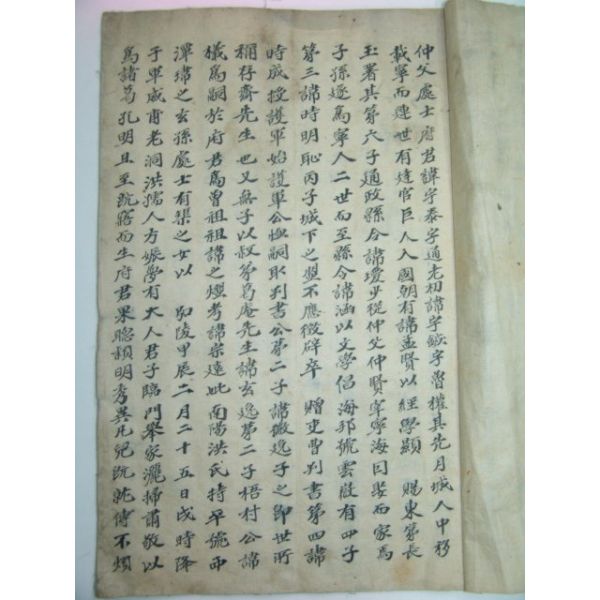 仲父處士府君諱宇泰字通老初諱宇鉽字魯權其先月城人中移
載寧而連世有達官巨人入國朝有諱孟賢以經學顯 賜東第長
玉署其第六子通政縣令諱璦少從仲父仲賢宰寧海因娶而家焉
子孫遂爲寧人二世而至縣令諱涵以文學倡海邦號雲嶽有四子
第三諱時明恥丙子城下之盟不應徵辟卒 贈吏曹判書第四諱
時成授護軍始護軍公無嗣取判書公第二子諱徽逸子之卽世所
稱存齋先生也又無子以叔弟葛庵先生諱玄逸第二子梧村公諱
檥爲嗣於府君爲曾祖祖諱之煐考諱宗遠妣南陽洪氏特平號
渾瑋之玄孫處士有榘之女以 陵甲辰二月二十五日戌時降
于軍威甫老洞洪孺人方娠夢有大人君子臨門擧家灑掃肅敬以
爲諸葛孔明且至旣寤而生府君果聰穎明秀異凡兒旣就傅不煩